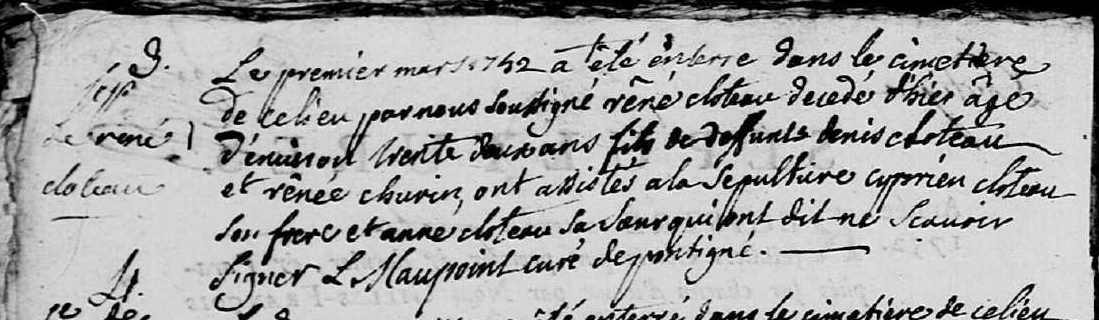 3.
Sep.
de rené
cloteau
Le premier mars 1752 a été enterré dans le cimetiere
de ce lieu par nous soussigné rêné cloteau decedé d'hier âgé
d'environ trente deux ans fils de deffunts denis cloteau
et rênée churin, ont assistés a la sepulture cyprién cloteau
son frere et anne cloteau sa sœur qui ont dit ne scavoir
signer L. Maupoint curé de pontigné.
4.
enterré dans le cimetière de ce lieu